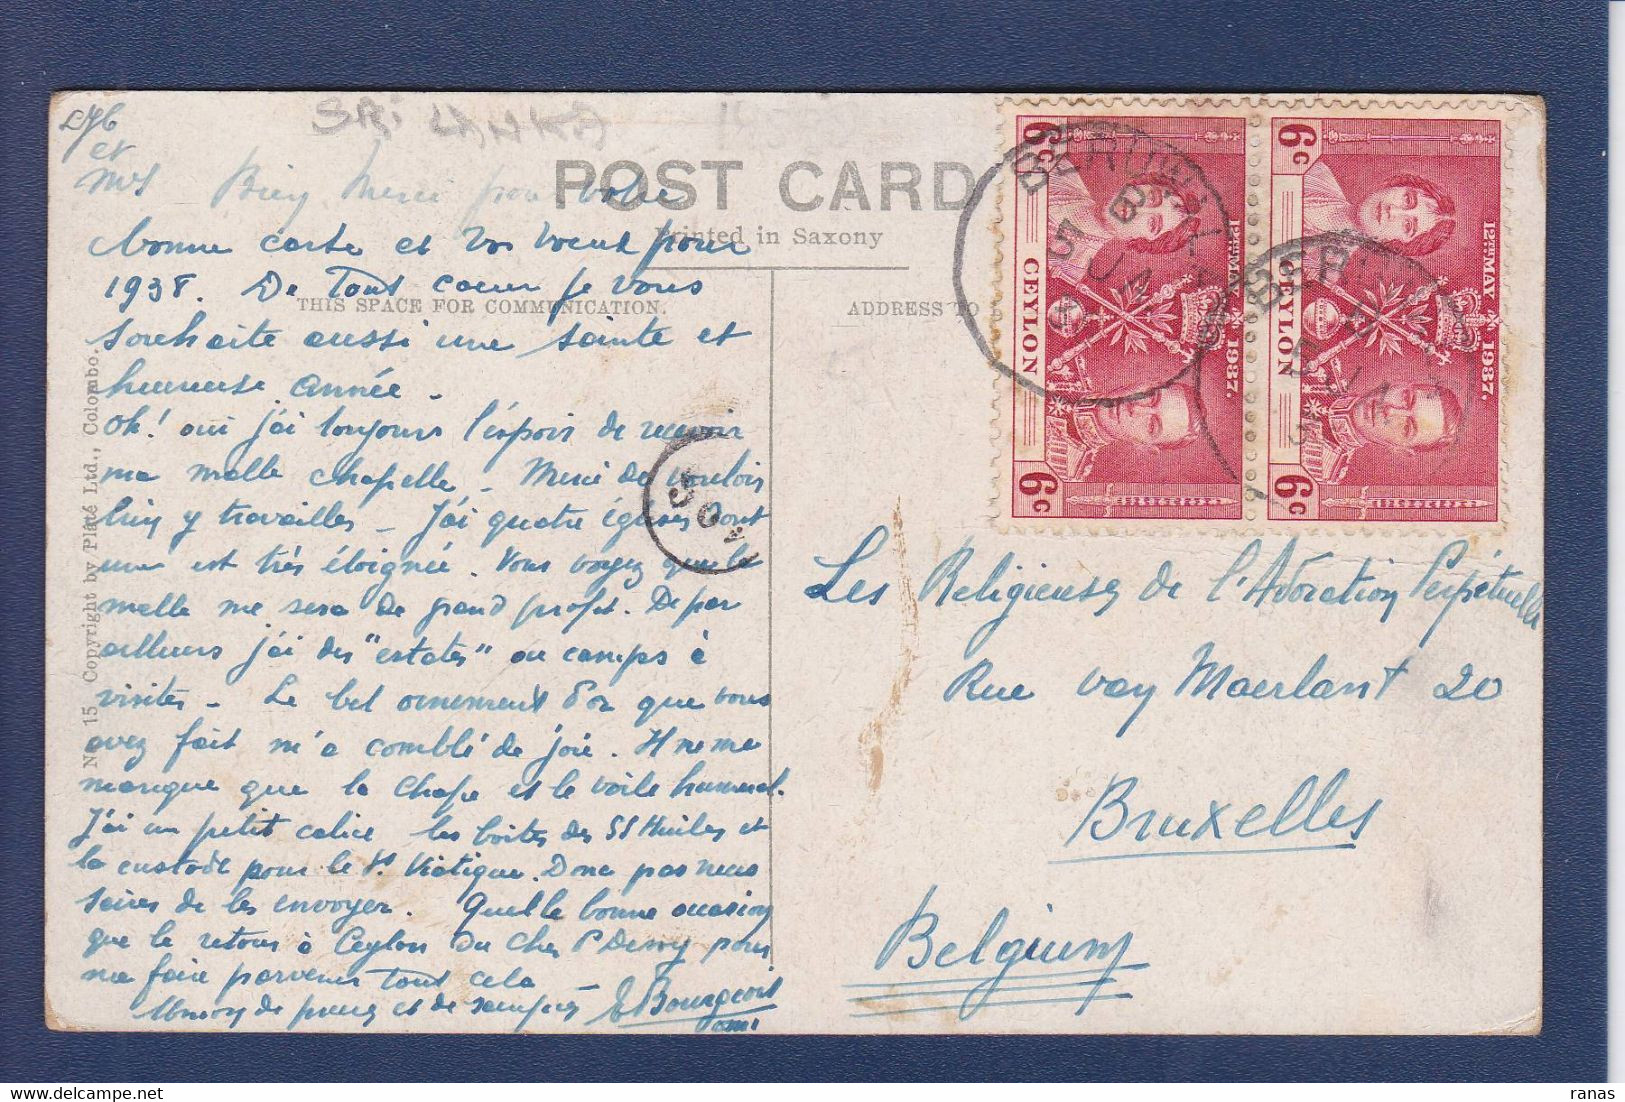 LJC
et
MI
SRi LANKA
POST CARD
Printed in Saxony
THIS SPACE FOR COMMUNICATION.
ADDRESS TO
No. 15 Copyright by Plâté Ltd., Colombo.
Bien Merci pour votre
bonne carte et vos voeux pour
1938. De tout coeur je vous
souhaite aussi une sainte et
heureuse année.
Oh! oui j'ai toujours l'espoir de recevoir
ma malle chapelle. Merci de vouloir
bien y travailler - J'ai quatre églises dont
une est très éloignée. Vous voyez que la
malle me sera de grand profit. De par
ailleurs j'ai des "estates" ou camps à
visiter - Le bel ornement d'or que vous
avez fait m'a comblé de joie. Il ne me
manque que la chape et le voile huméral.
J'ai un petit calice les boites des SS Huiles et
la custode pour le St Viatique. Donc pas néces
saires de les envoyer. Quelle bonne occasion
que le retour à Ceylon du cher P. pour
me faire parvenir tout cela
Union de prières et de
E Bourgeois
omi
6c
CEYLON
12TH MAY 1937.
6c
6c
CEYLON
12TH MAY 1937.
6c
BERUWALA
5 JA
38
BERUWALA
5 JA
Les Religieuses de l'Adoration Perpétuelle
Rue van Maerlant 20
Bruxelles
Belgium
ranas